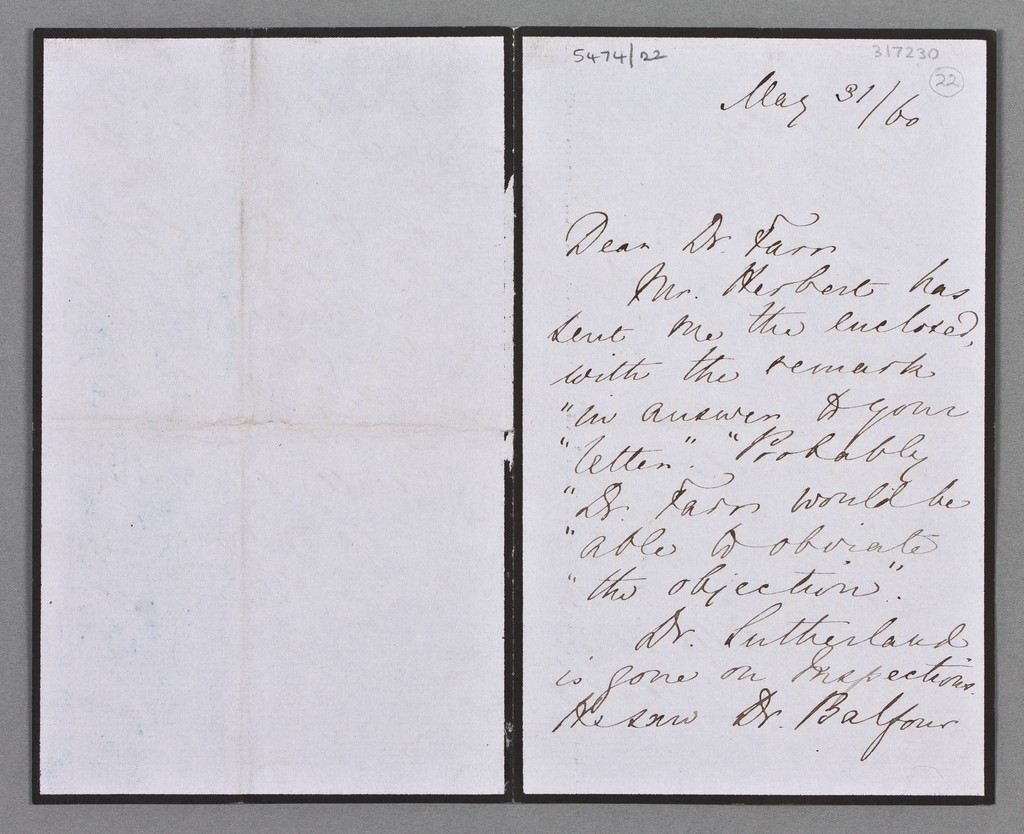 5474/22
317230
22
May 31/60
Dear Dr. Farr
Mr. Herbert has
sent me the enclosed,
with the remark
"in answer to your
"letter". "Probably
"Dr. Farr would be
"able to obviate
"the objection".
Dr. Sutherland
is gone on Inspections.
He saw Dr. Balfour